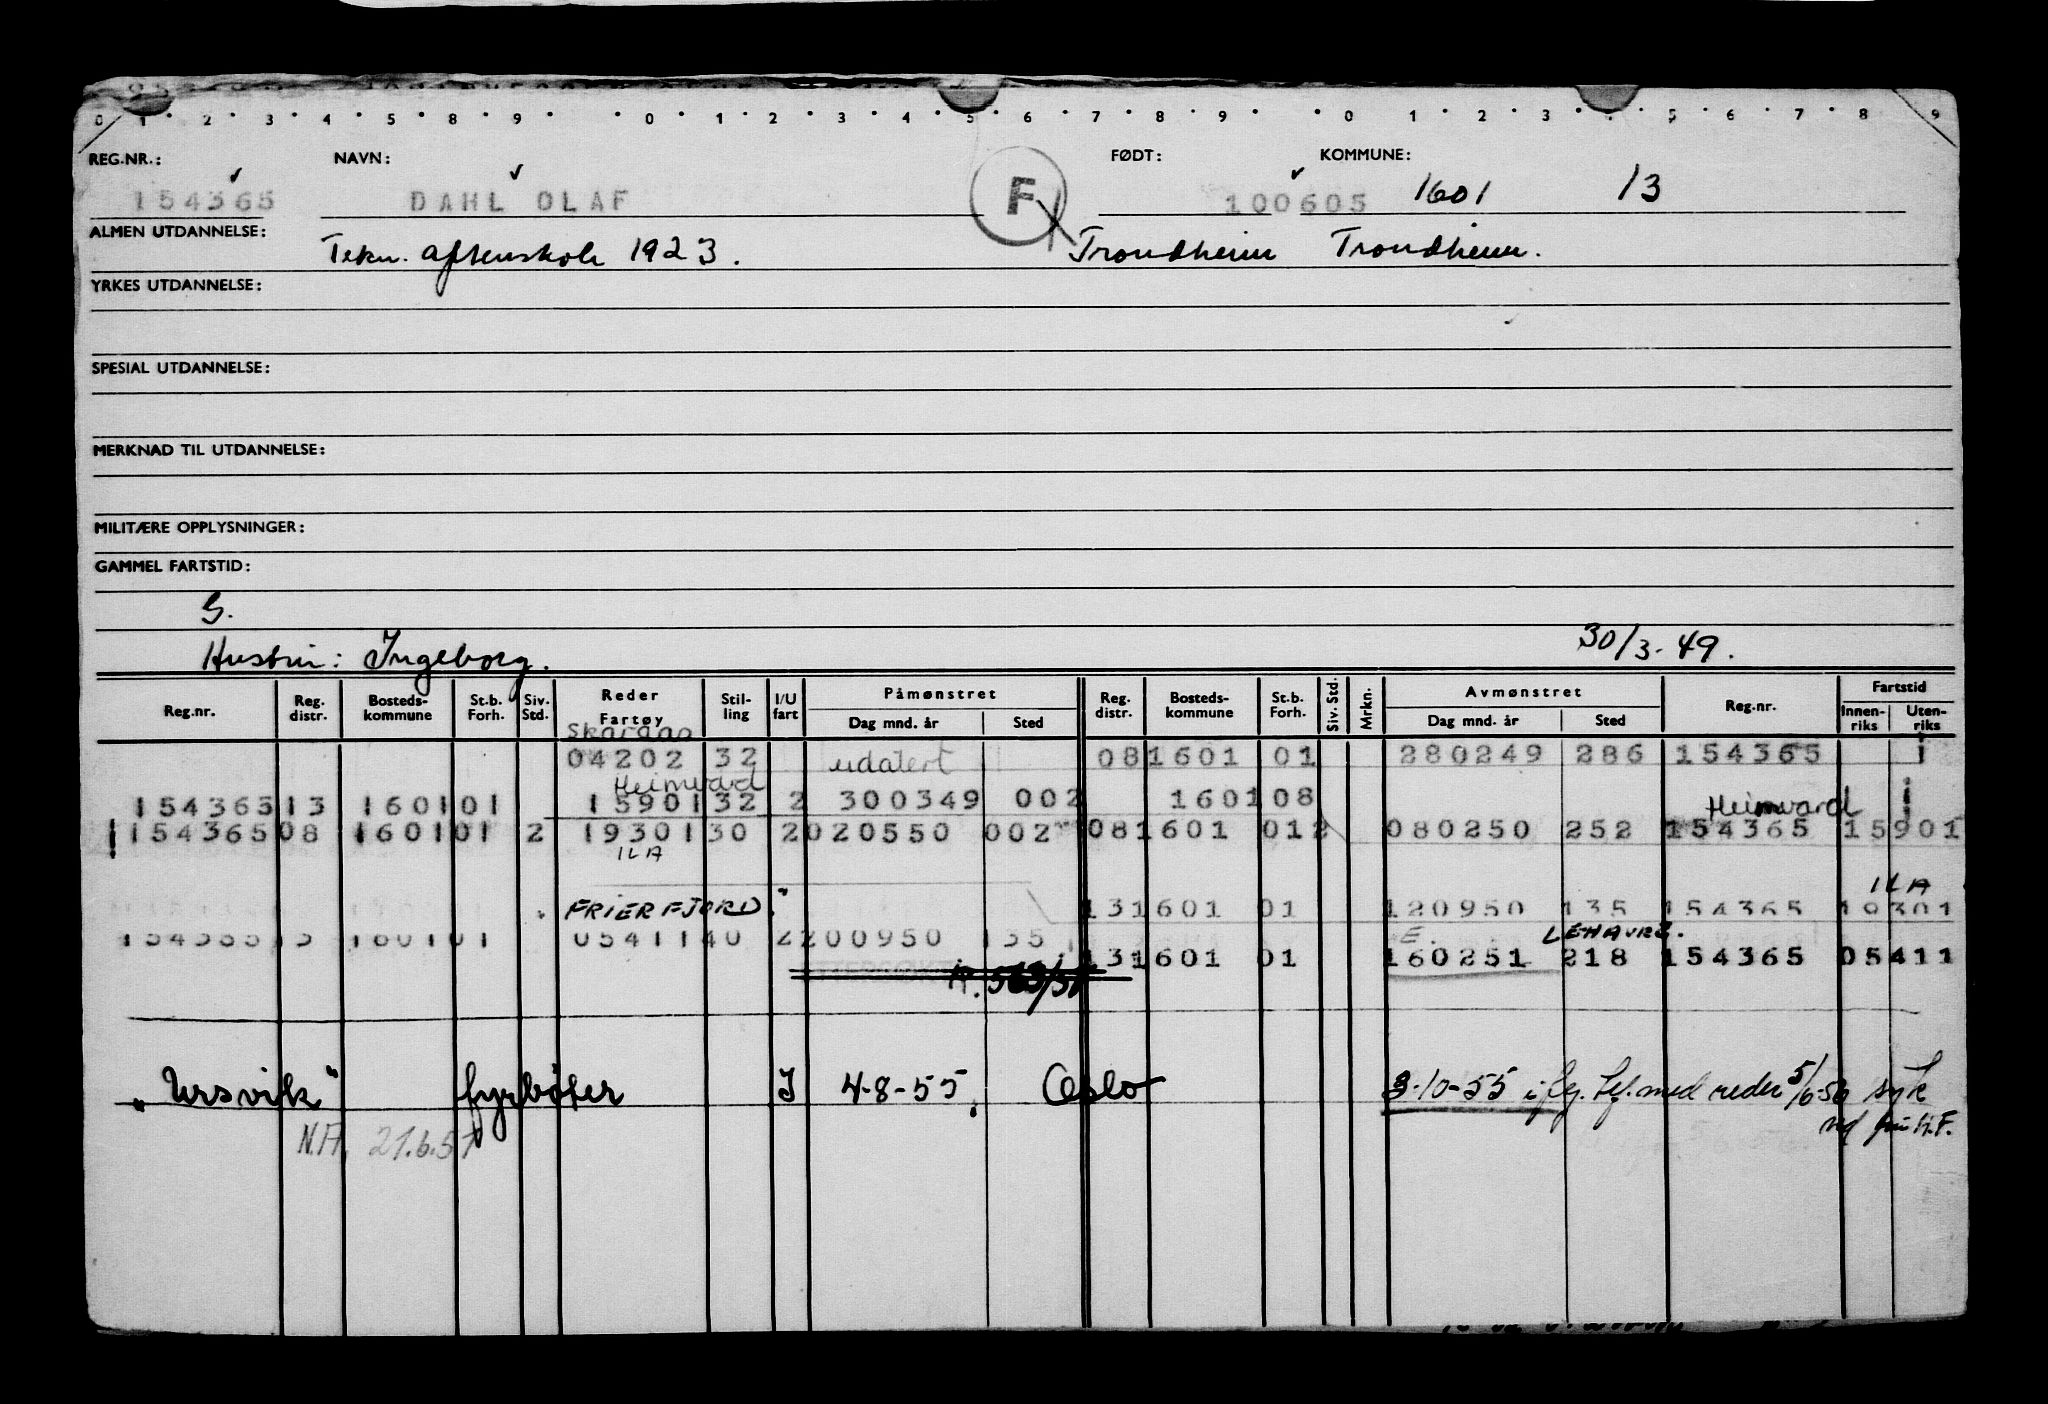 0 1 2 3 4 5 8 9 0 1 2 3 4 5 6 7 8 9 0 1 2 3 5 6 7 8 9
REG.NR.: NAVN: FØDT: KOMMUNE:
154365 DAHL OLAF F 100605 1601 13
ALMEN UTDANNELSE: Tekn. aftenskole 1923. Trondheim Trondheim.
YRKES UTDANNELSE:
SPESIAL UTDANNELSE:
MERKNAD TIL UTDANNELSE:
MILITÆRE OPPLYSNINGER:
GAMMEL FARTSTID:
S.
Hustru: Ingeborg. 30/3-49.
Reg.nr. Reg. distr. Bosteds- kommune St.b. Forh. Siv. Std. Reder Fartøy Stil- ling I/U fart Påmønstret Dag mnd. år Sted Reg. distr. Bosteds- kommune St.b. Forh. Siv. Std. Mrkn. Avmønstret Dag mnd. år Sted Reg.nr. Fartstid Innen- riks Uten- riks
04202 32 udatert 081601 01 280249 286 154365 1
Heimvard
15436513 160101 15901 32 2 300349 002 160108 Heimvard
15436508 160101 2 19301 30 2 020550 002 081601 012 080250 252 154365 15901
ILA
ILA
FRIERFJORD." 131601 01 120950 135 154365 19301
E. LEHAVRE.
15436513 160101 05411 40 2 200950 135 131601 01 160251 218 154365 05411
"Ursvik" fyrbøter I 4-8-55, Oslo 3-10-55 i flg. tlf. med reder 5/6-56 syk
N.A. 21.6.57